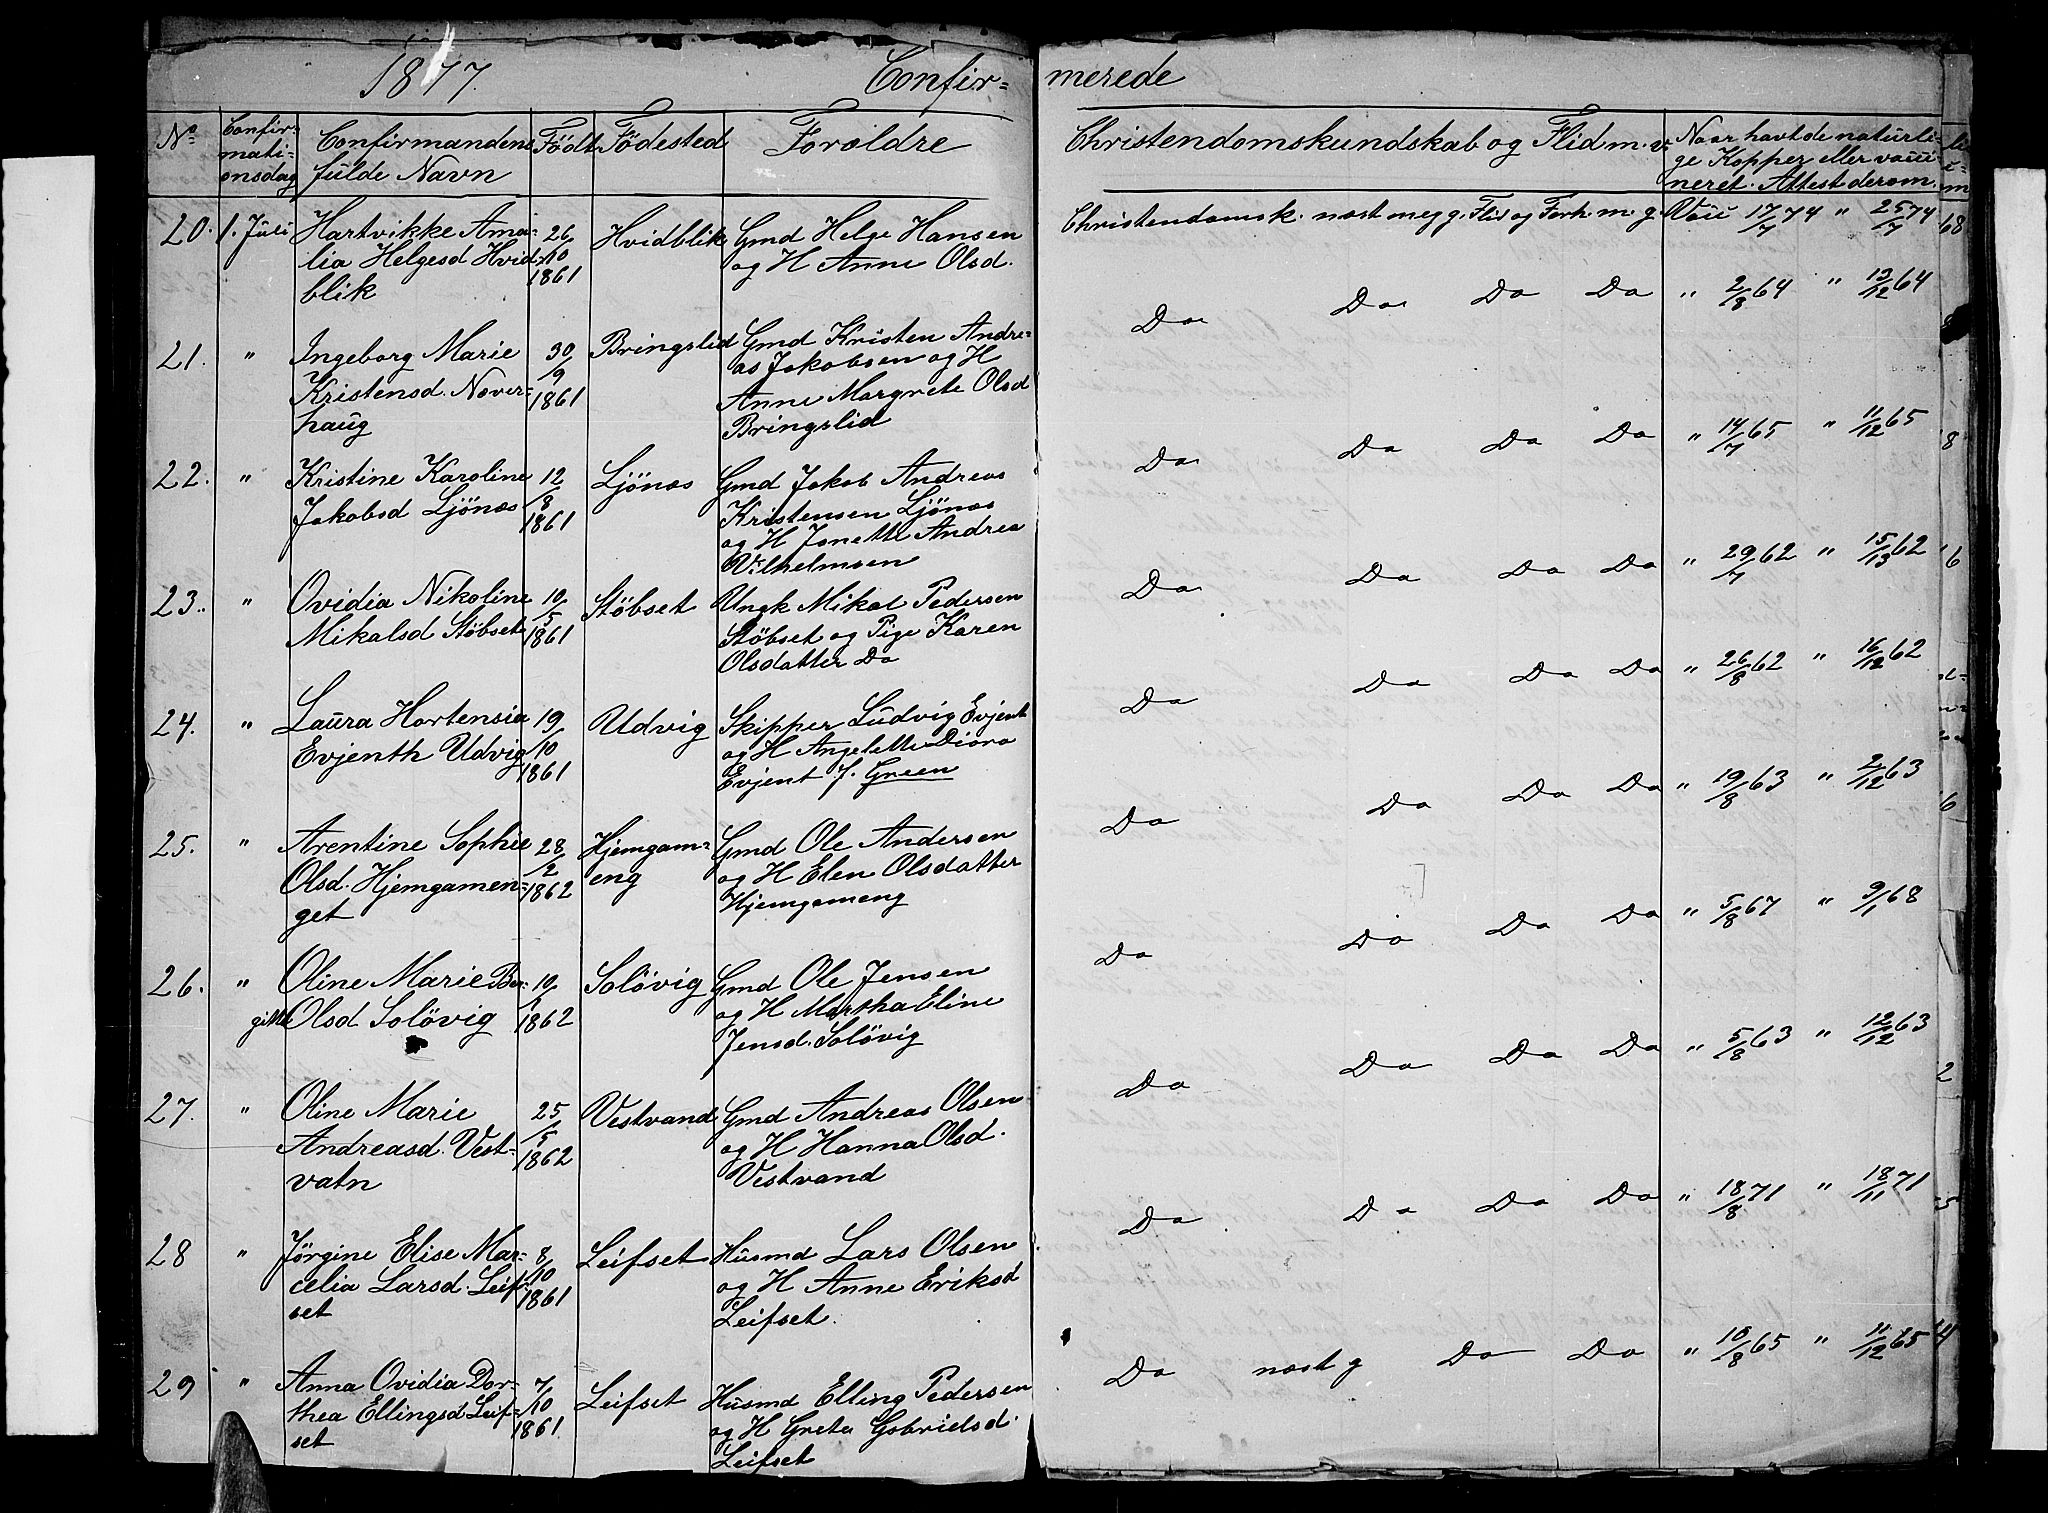 1877. Confir=
merede
No Confir=mati=onsdag Confirmandens fulde Navn Födt Födested Forældre Christendomskundskab og Flid m. v. Naar havt de naturli=ge Kopper eller vacci=neret. Attest derom.
20. 1. Juli Hartvikke Ama= 26/10 Hvidblik Gmd Helge Hansen Christendomsk. næst meg g. Flid og Forh. m. g. Vac 17/7 74 " 25/7 74
lia Helgesd Hvid= 1861 og H Anne Olsd.
blik
21. " Ingeborg Marie 30/9 Bringslid Gmd Kristen Andre= Do Do Do Do " 2/8 64 " 13/12 64
Kristensd. Nover= 1861 as Jakobsen og H
haug Anne Margrete Olsd
Bringslid
22. " Kristine Karoline 12/8 Ljönæs Gmd Jakob Andreas Do Do Do Do " 14/7 65 " 11/12 65
Jakobsd Ljönæs 1861 Kristensen Ljönæs
og H Janette Andrea
Vilhelmsen
23. " Ovidia Nikoline 10/5 Stöbset Ungk Mikal Pedersen Do Do Do Do " 29/7 62 " 15/13 62
Mikalsd Stöbset 1861 Stöbset og Pige Karen
Olsdatter Do
24. " Laura Hortensia 19/10 Udvig Skipper Ludvig Evjent Do Do Do Do " 26/8 62 " 16/12 62
Evjenth Udvig 1861 og H Angelette Diora
Evjent f. Green
25. " Arentine Sophie 28/2 Hjemgam= Gmd Ole Andersen Do Do Do Do " 19/8 63 " 2/12 63
Olsd. Hjemgamen= 1862 eng og H Elen Olsdatter
get Hjemgameng
26. " Oline Marie Ber= 10/1 Solövig Gmd Ole Jensen Do Do Do Do " 5/8 67 " 9/1 68
gitte Olsd Solövig 1862 og H Martha Eline
Jensd. Solövig
27. " Oline Marie 25/5 Vestvand Gmd Andreas Olsen Do Do Do Do " 5/8 63 " 12/12 63
Andreasd. Vest= 1862 og H Hanna Olsd.
vatn Vestvand
28 " Jörgine Elise Mar= 8/10 Leifset Husmd Lars Olsen Do Do Do Do " 18/8 71 " 18/11 71
celia Larsd. Leif= 1861 og H Anne Eriksd
set Leifset.
29 " Anna Ovidia Dor= 7/10 Leifset Husmd Elling Pedersen Do næst g Do Do " 10/8 65 " 11/12 65
thea Ellingsd Leif= 1861 og H Greta Gabrielsd.
set Leifset